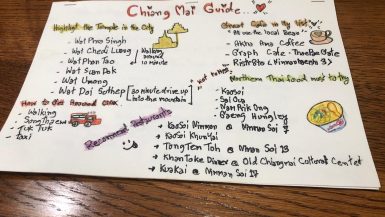 Chiang Mai Guide...
Highlight the Temple in the City
- Wat Phra Singh
- Wat Chedi Luang
- Wat Phan Tao
- Wat Suan Dok
- Wat Umong
- Wat Doi Suthep
Walking around 10 minute
30 minute, drive up into the mountain
How to Get Around CNX.
- Walking
- Songthaew
- Tuk Tuk
- Taxi
Great Cafe in My List
* All use the local Bean
- Akha Ama Coffee
- Graph Cafe - Thae Gate
- Ristr8to @ Nimmanhaemin
Northern Thai food must to try
- Kaosoi
- Sai Oua
- Nam Prik Ong
- Gaeng Hungley
Recommend Restaurants
- Kao Soi Nimman @ Nimman Soi 7
- Kao Soi Khun Yai
- Tong Tem Toh @ Nman Soi 13
- Khan Toke Dinner @ Old Chiangmai Cultural Center
- Kuakai @ Nman Soi 17